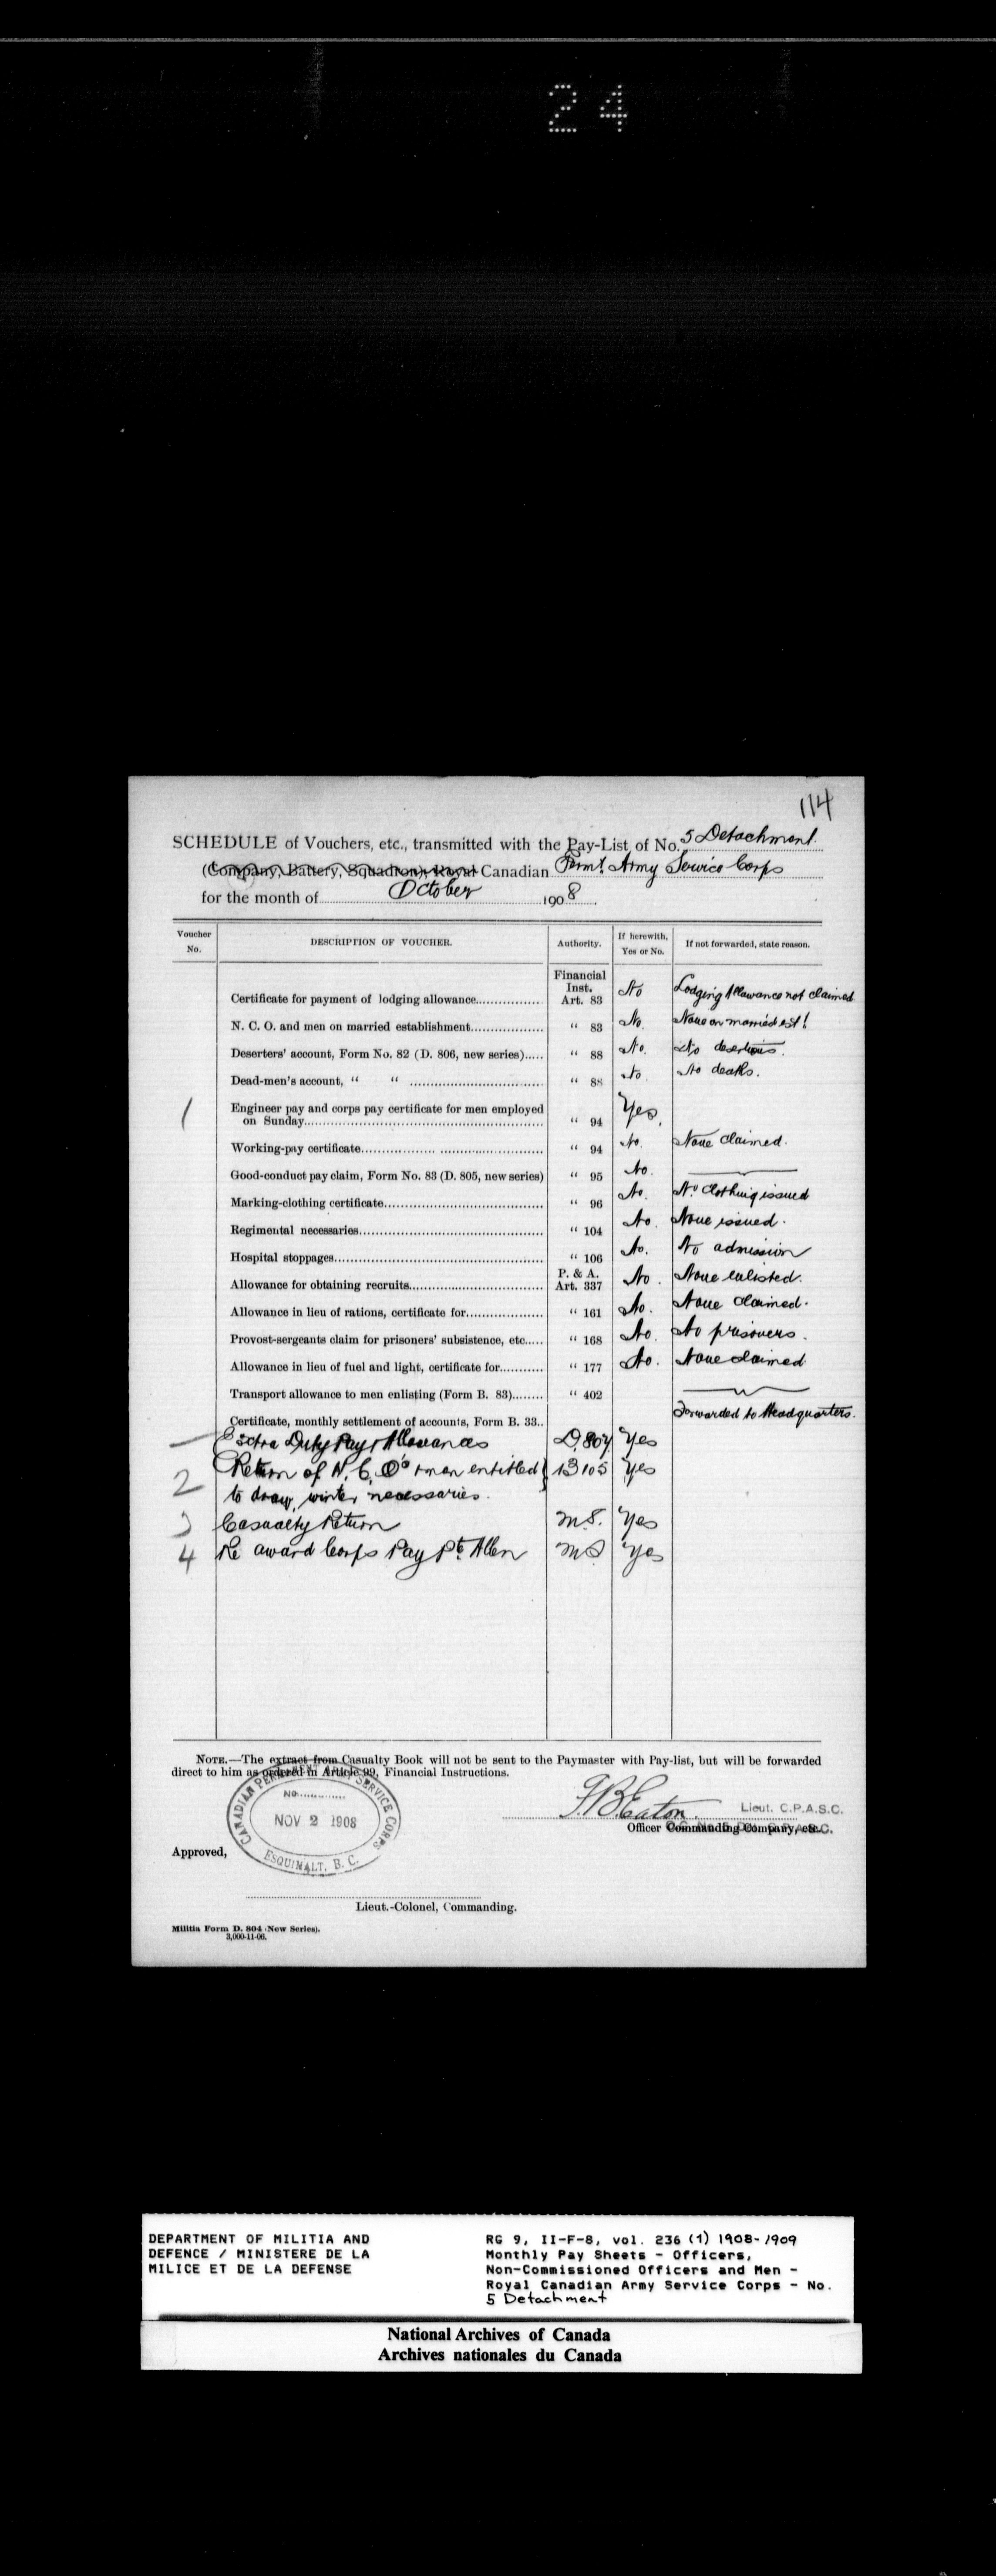 24
114
SCHEDULE of Vouchers, etc., transmitted with the Pay-List of No. 5 Detachment
(Company, Battery, Squadron), Royal Canadian Permt. Army Service Corps
for the month of October 1908
Voucher No. DESCRIPTION OF VOUCHER. Authority. If herewith, Yes or No. If not forwarded, state reason.
Financial Inst.
Certificate for payment of lodging allowance Art. 83 No Lodging Allowance not claimed
N. C. O. and men on married establishment " 83 No. None on married est!
Deserters' account, Form No. 82 (D. 806, new series) " 88 No. No desertions.
Dead-men's account, " " " 88 No. No deaths.
1 Engineer pay and corps pay certificate for men employed
on Sunday " 94 Yes.
Working-pay certificate " 94 No. None claimed.
Good-conduct pay claim, Form No. 83 (D. 805, new series) " 95 No.
Marking-clothing certificate " 96 No. No clothing issued
Regimental necessaries " 104 No. None issued.
Hospital stoppages " 106 No. No admission
P. & A.
Allowance for obtaining recruits Art. 337 No. None enlisted.
Allowance in lieu of rations, certificate for " 161 No. None claimed.
Provost-sergeants claim for prisoners' subsistence, etc. " 168 No. No prisoners.
Allowance in lieu of fuel and light, certificate for " 177 No. None claimed
Transport allowance to men enlisting (Form B. 83) " 402
Certificate, monthly settlement of accounts, Form B. 33.. Forwarded to Headquarters.
Extra Duty Pay & Allowances D. 807 Yes
2 Return of N. C. O's & men entitled B 105 Yes
to draw winter necessaries.
3 Casualty Return M.S. Yes
4 Re award Corps Pay Pte. Allen M.S. Yes
NOTE.—The extract from Casualty Book will not be sent to the Paymaster with Pay-list, but will be forwarded
direct to him as ordered in Article 99, Financial Instructions.
CANADIAN PERMANENT ARMY SERVICE CORPS
No.
NOV 2 1908
ESQUIMALT, B. C.
F.B. Eaton Lieut. C.P.A.S.C.
Officer Commanding Company, etc.
Approved,
Lieut.-Colonel, Commanding.
Militia Form D. 804 (New Series).
3,000-11-06.
DEPARTMENT OF MILITIA AND
DEFENCE / MINISTERE DE LA
MILICE ET DE LA DEFENSE
RG 9, II-F-8, vol. 236 (1) 1908-1909
Monthly Pay Sheets - Officers,
Non-Commissioned Officers and Men -
Royal Canadian Army Service Corps - No.
5 Detachment
National Archives of Canada
Archives nationales du Canada